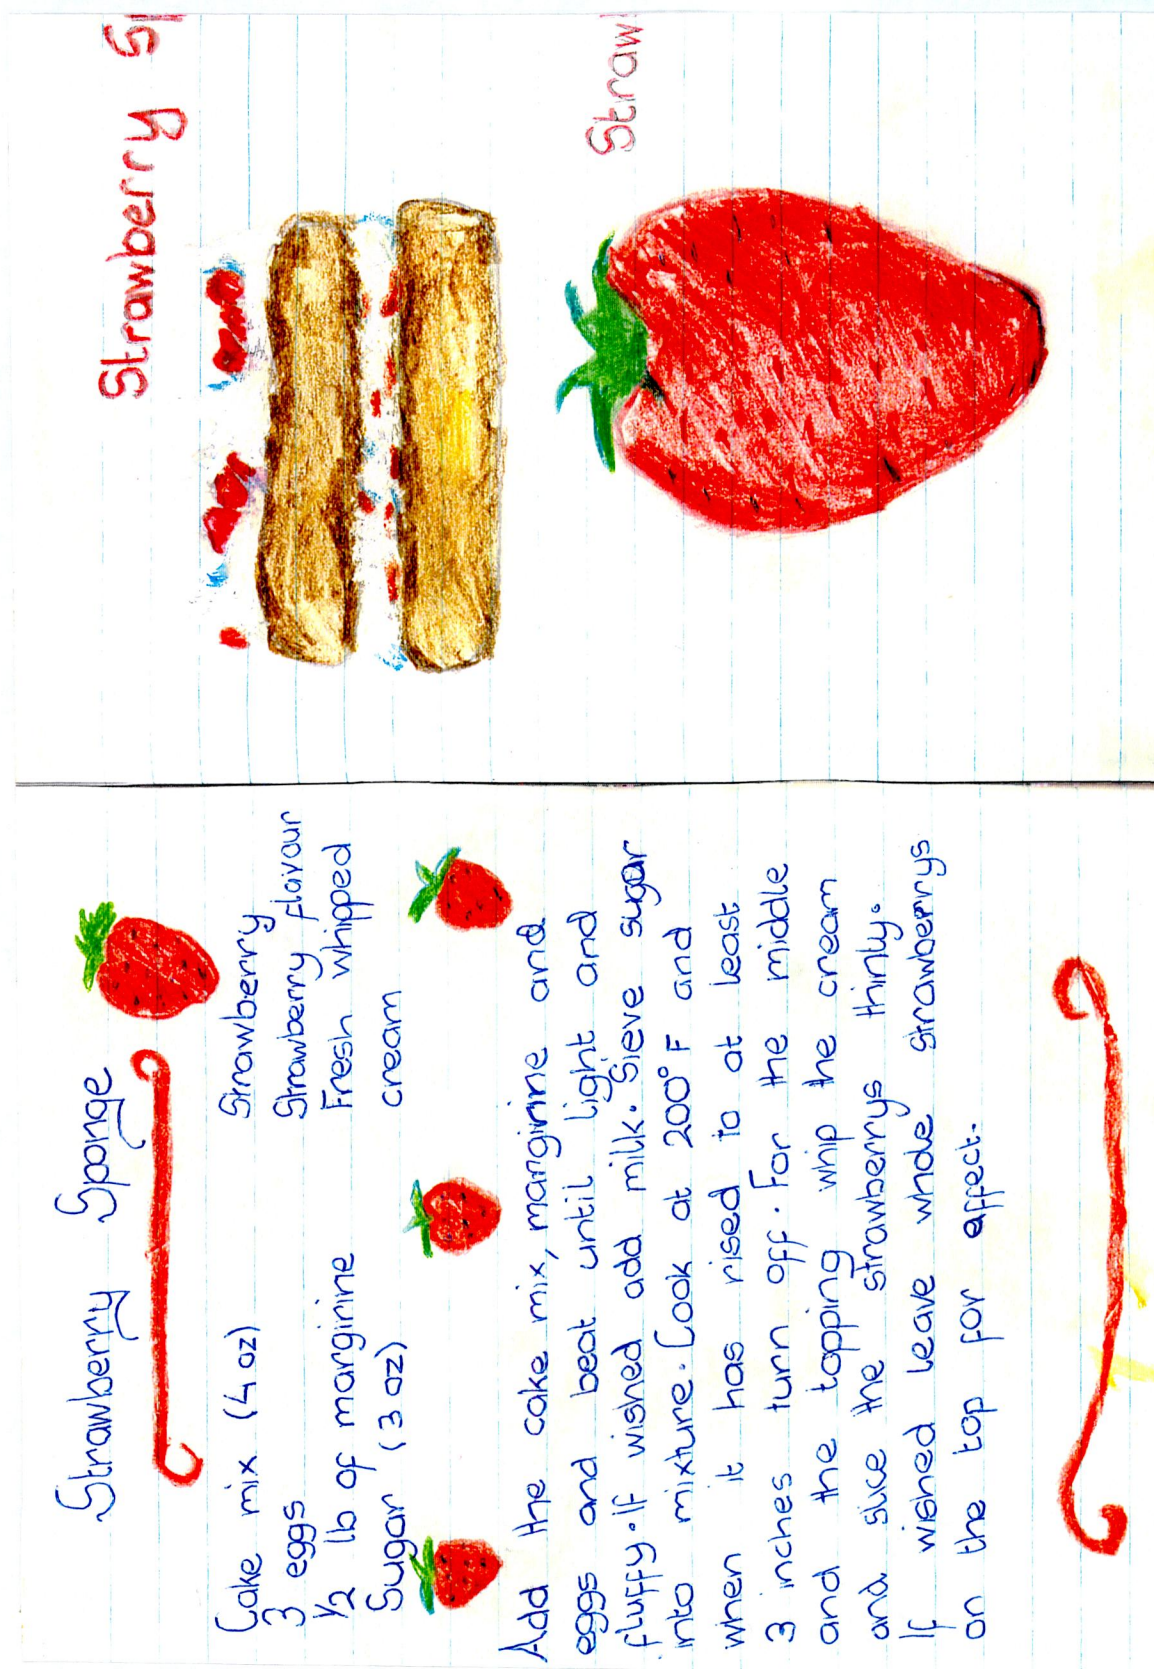 Strawberry Sponge
Cake mix (4 oz)
3 eggs
1/2 lb of marginine
Sugar (3 oz)
Strawberry
Strawberry flavour
Fresh whipped
cream
Add the cake mix, marginine and
eggs and beat until light and
fluffy. If wished add milk. Sieve sugar
into mixture. Cook at 200° F and
when it has rised to at least
3 inches turn off. For the middle
and the topping whip the cream
and slice the strawberrys thinly.
If wished leave whole strawberrys
on the top for affect.
Strawberry Sp
Straw